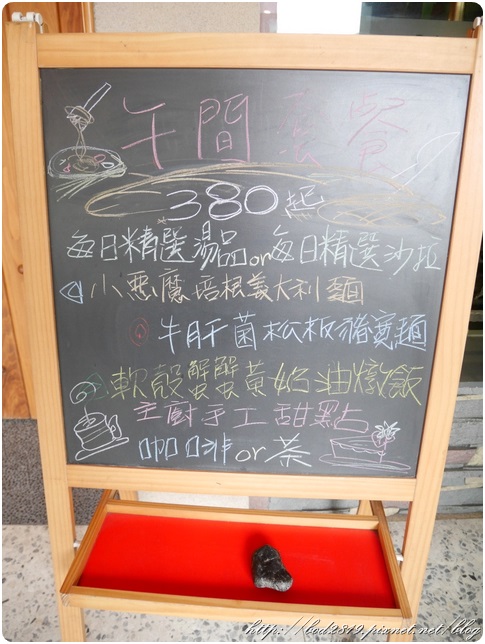 午間套餐
380起
每日精選湯品or每日精選沙拉
小惡魔培根義大利麵
牛肝菌松板豬寬麵
軟殼蟹蟹黃奶油燉飯
主廚手工甜點
咖啡or茶
http://bod2819.pixnet.net/blog